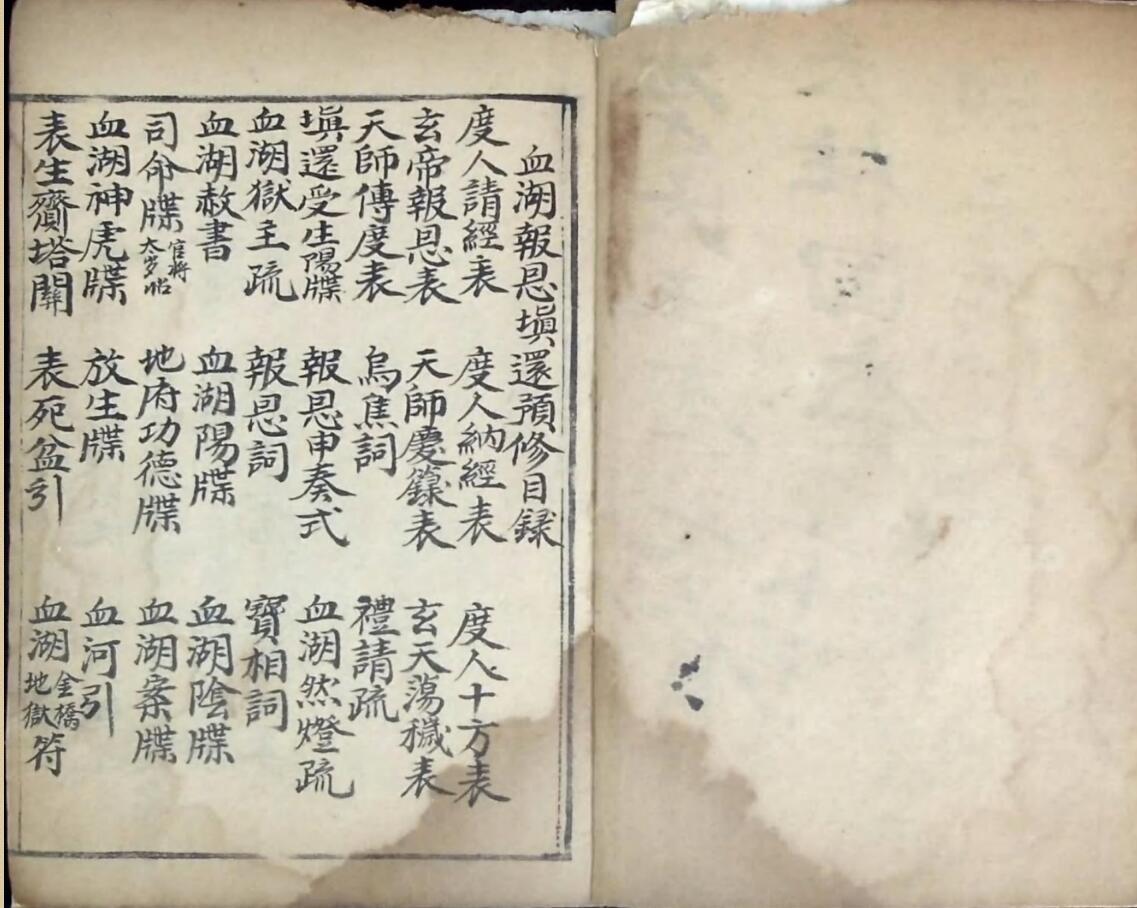 血湖報恩填還預修目録
度人請經表　度人納經表　度人十方表
玄帝報恩表　天師慶籙表　玄天蕩穢表
天師傳度表　烏焦詞　禮請疏
填還受生陽牒　報恩申奏式　血湖然燈疏
血湖獄主疏　報恩詞　寶相詞
血湖赦書　血湖陽牒　血湖陰牒
司命牒官將太歲帖　地府功德牒　血湖案牒
血湖神虎牒　放生牒　血河引
表生齎塔關　表死盆引　血湖金橋地獄符